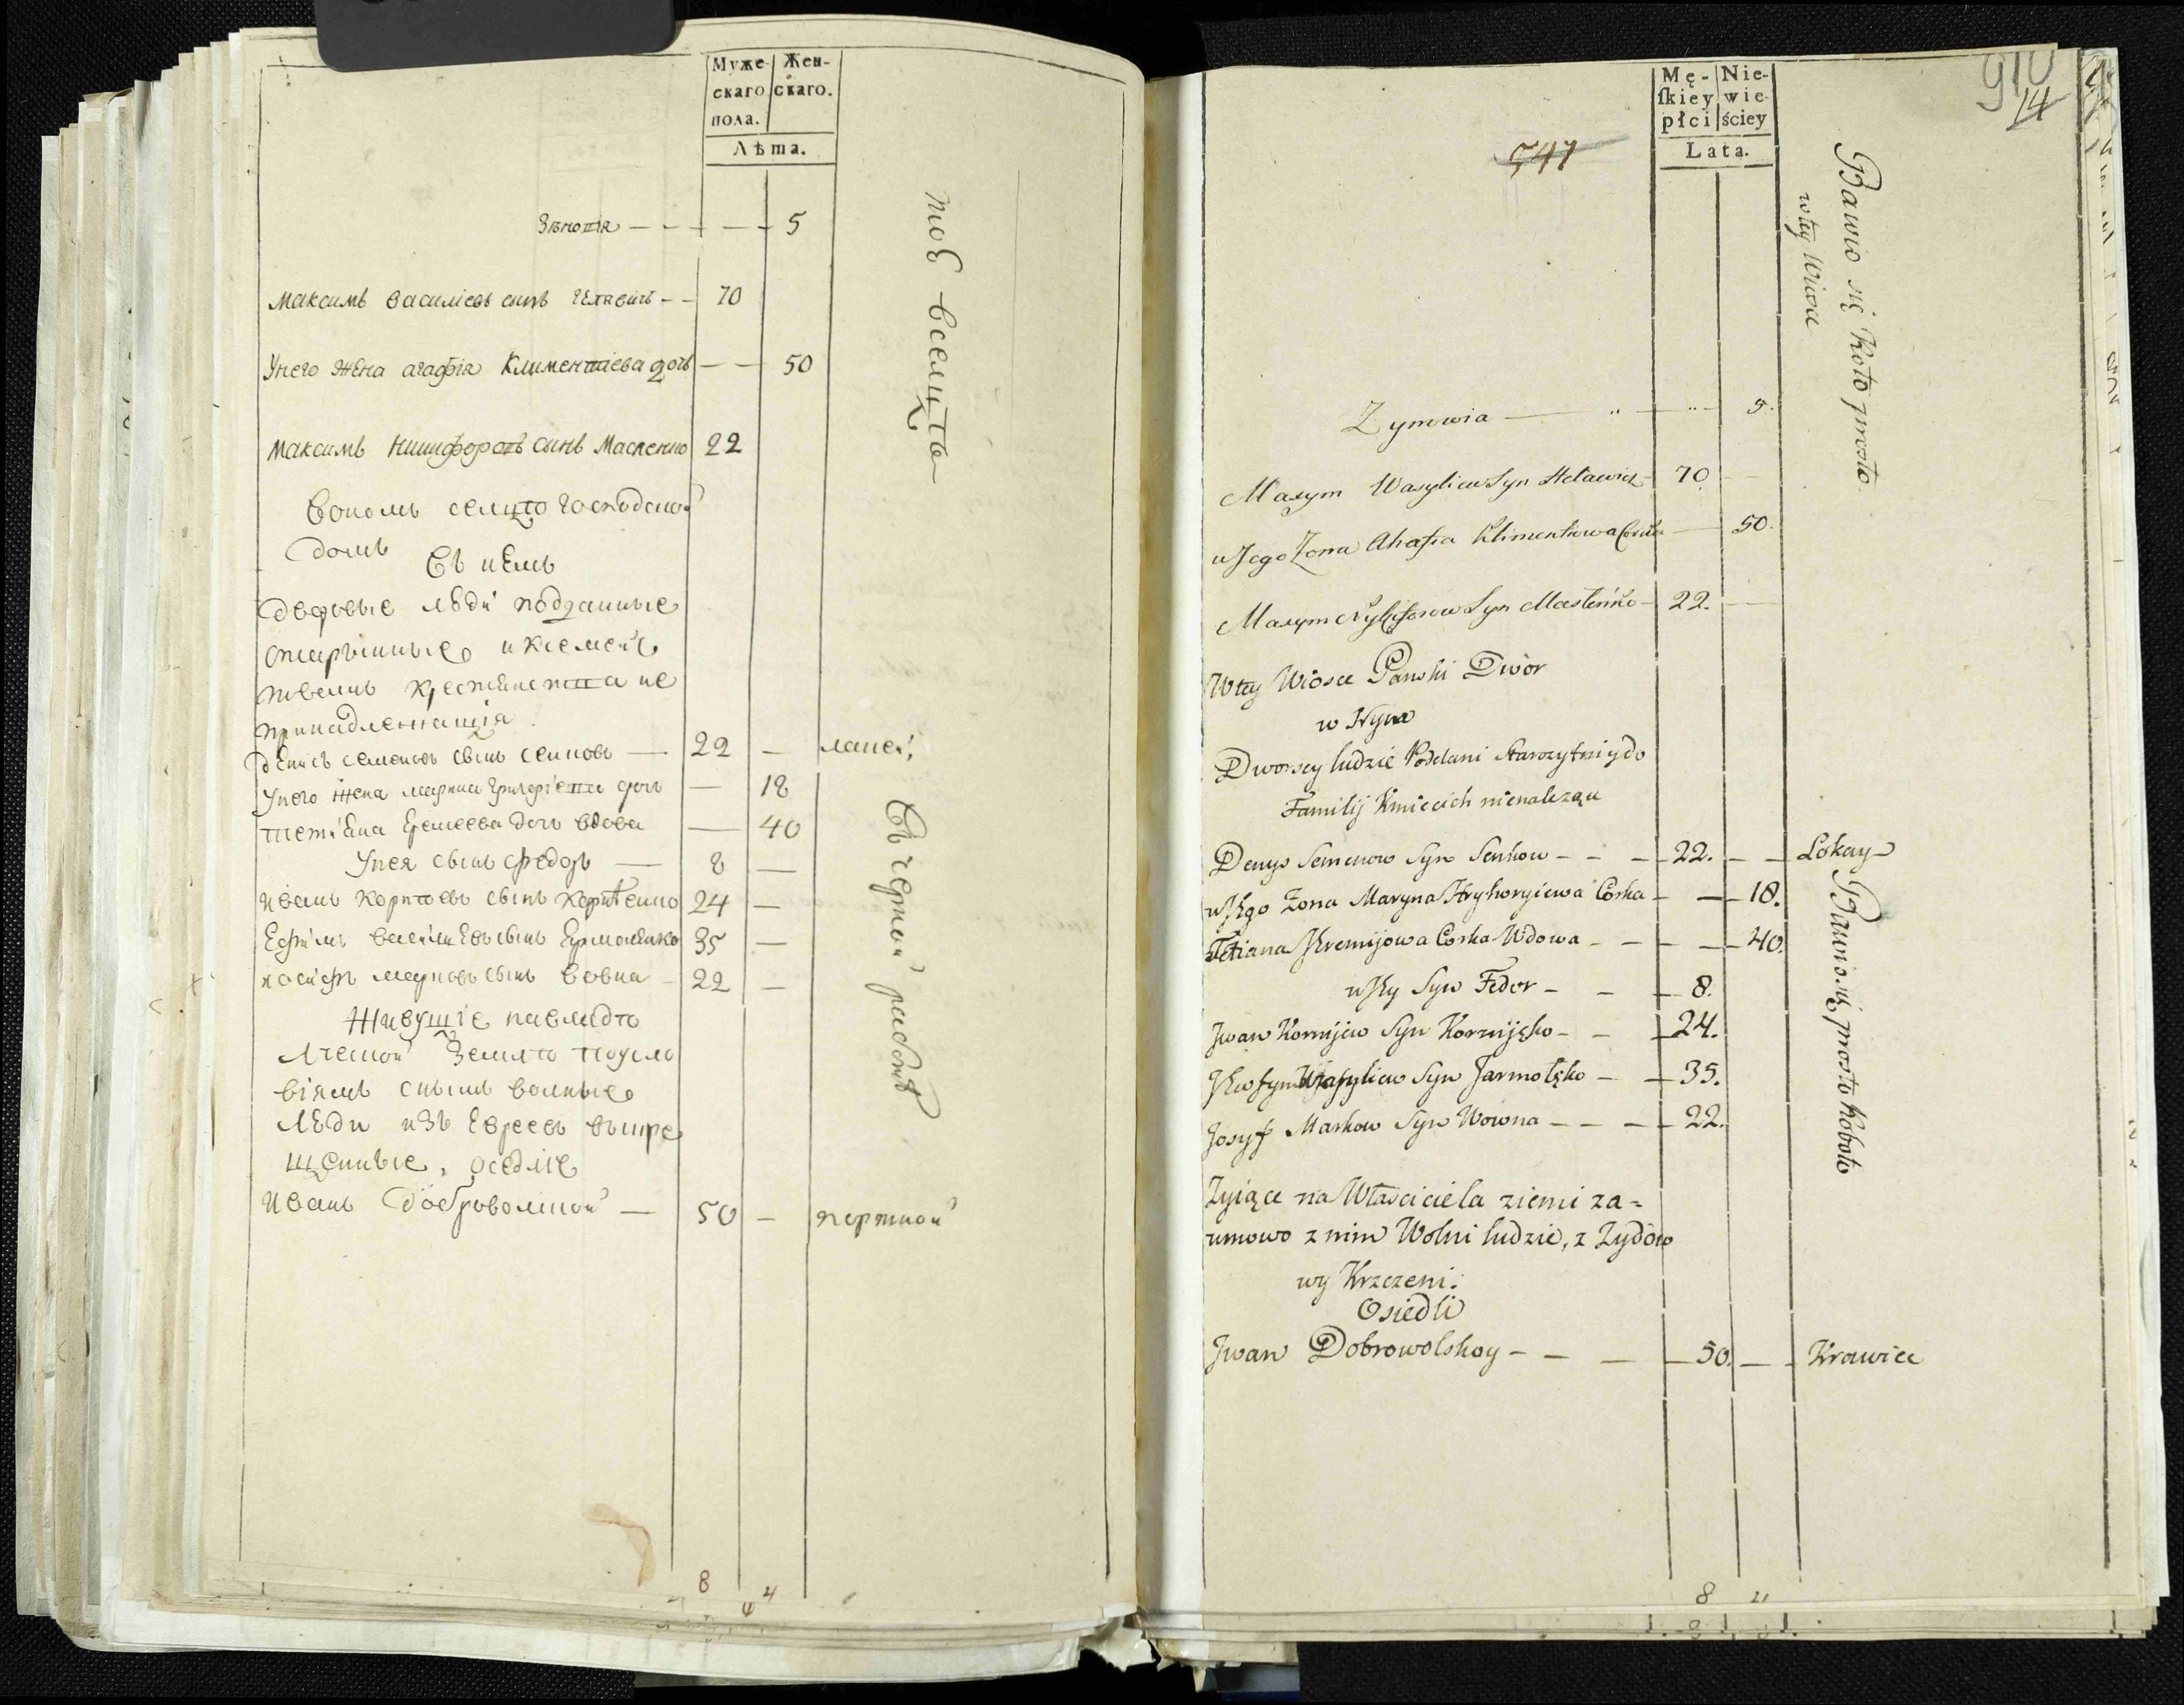 Муже-
скаго
пола.
Жен-
скаго.
Лѣта.
Зѣновія — — — — 5
Максимъ Василіевъ сынъ — — 70
Унего жена агафія Климентіева дочь — — 50
Максимъ Никифоровъ сынъ Масленко 22
Вономъ селцѣ Господской
домъ
Въ немъ
дворовые люди подданные
старынные
крестьянства не
принадлежащія
денисъ семеновъ сынъ сенковъ — 22 — лакей
Унего жена марина григоріева дочь — 18
тетіена Еремеева дочь вдова — 40
Унея сынъ федоръ — 8 —
Иванъ корніевъ сынъ корнѣенко 24 —
Ефимъ василиевъ сынъ Ермоленко 35 —
иосифъ марковъ сынъ вовна — 22 —
Живущіе
землѣ поусло
віямъ снымъ волные
люди изъ Евреевъ выкре
щенные, оседліе
Иванъ доброволской — 50 — портной
томъ селцѣ
въ черной работѣ
8 4
910
14
541
Mę-
ſkiey
płci
Nie-
wie-
ściey
Lata.
Bawio się Koło prosto
w tey Wiosce
Zynowia — " — " — 5.
Maxym Wasyliew Syn — 70. —
u Jego Zona Ahafia Klimentiowa Corka — 50.
Maxym Nykiforow Syn Masleńko — 22. —
W tey Wiosce Panski Dwór
w Nym
Dworscy ludzie Poddani Starozytni y do
Familij Kmiecich nienalezące
Denys Semenow Syn Senkow — — — 22. — — Lokay
u Jego Zona Maryna Hryhoryiewa Corka — — 18.
Tetiana Jeremijowa Corka Wdowa — — — — 40.
u Jey Syn Fedor — — — 8.
Jwan Kornijew Syn Kornijęko — — 24.
Jewfym Wasyliew Syn Jarmolęko — — 35.
Josyf Markow Syn Wowna — — — 22.
Bawio się prosto Roboto
Zyiące na Własciciela ziemi za=
umowo z nim Wolni ludzie, z Zydów
wy Krzczeni.
Osiedli
Jwan Dobrowolskoy — — — 50. — — Krawiec
8 4